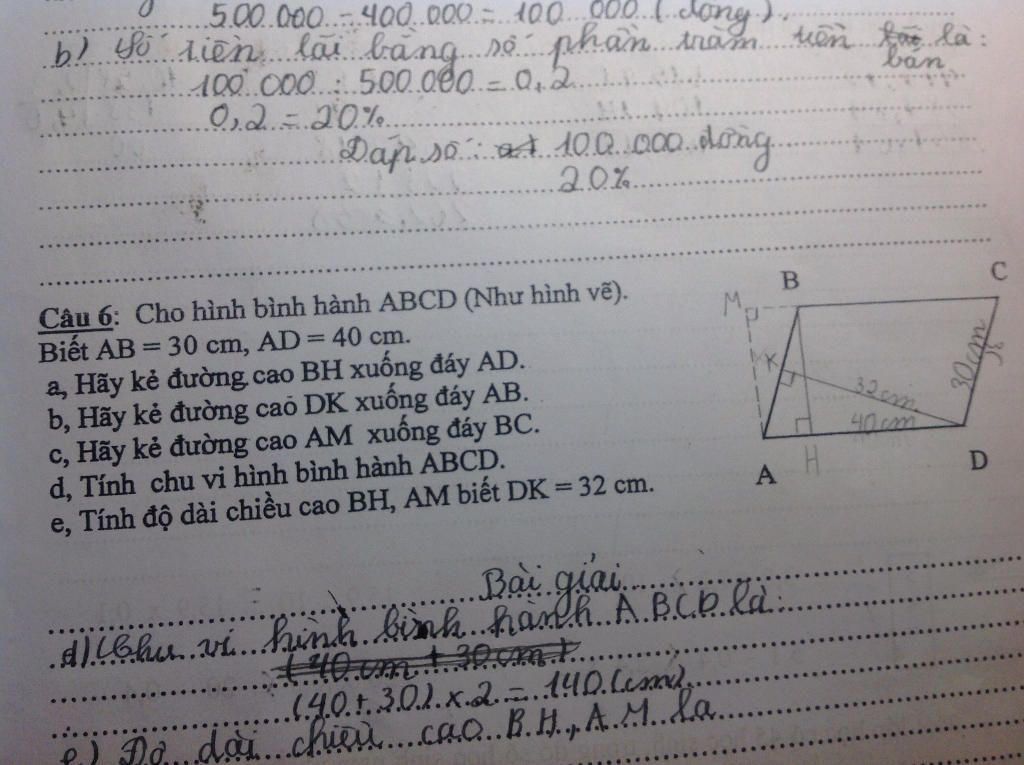 500.000 - 400.000 = 100.000 (đồng).
b) Số tiền lãi bằng số phần trăm tiền bán là:
100.000 : 500.000 = 0,2
0,2 = 20%
Đáp số: 100.000 đồng
20%
Câu 6: Cho hình bình hành ABCD (Như hình vẽ).
Biết AB = 30 cm, AD = 40 cm.
a, Hãy kẻ đường cao BH xuống đáy AD.
b, Hãy kẻ đường cao DK xuống đáy AB.
c, Hãy kẻ đường cao AM xuống đáy BC.
d, Tính chu vi hình bình hành ABCD.
e, Tính độ dài chiều cao BH, AM biết DK = 32 cm.
M B C
K
32cm
30cm
40cm
A H D
Bài giải
d) Chu vi hình bình hành ABCD là:
(40 cm + 30 cm) +
(40 + 30) x 2 = 140 (cm)
e) Độ dài chiều cao BH, AM là